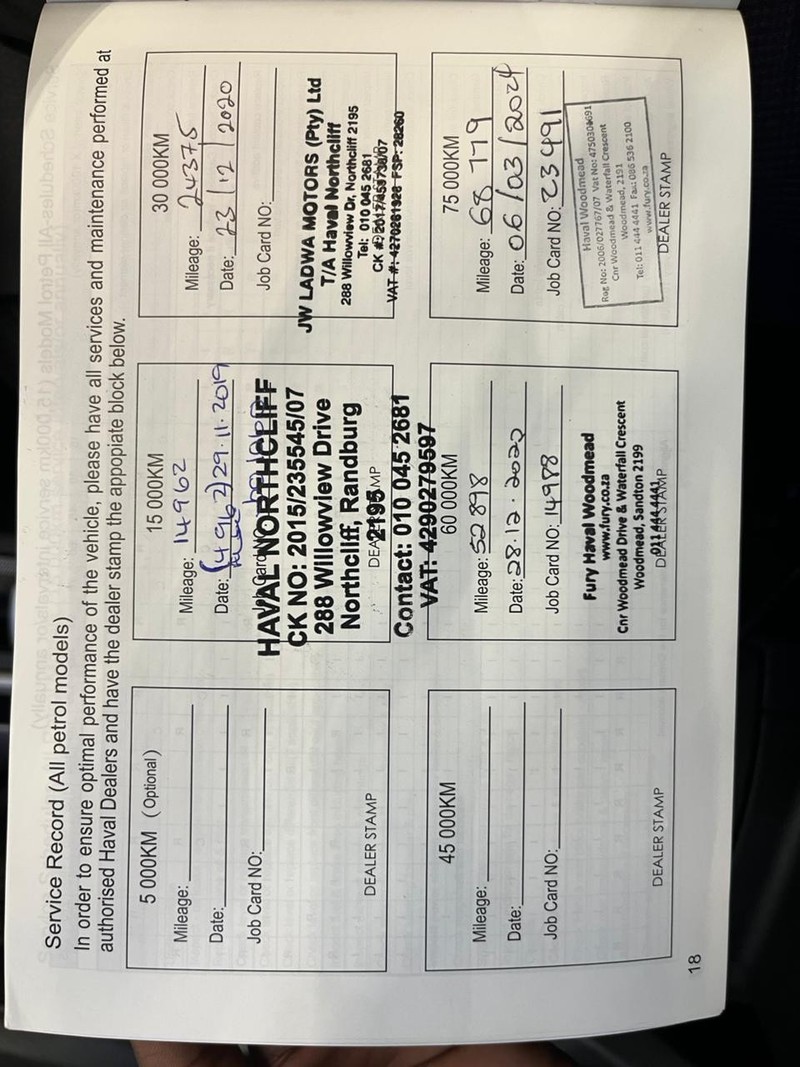 Service Record (All petrol models)
In order to ensure optimal performance of the vehicle, please have all services and maintenance performed at
authorised Haval Dealers and have the dealer stamp the appopiate block below.
5 000KM (Optional)
Mileage:
Date:
Job Card NO:
DEALER STAMP
15 000KM
Mileage: 14962
Date: 14962) 29.11.2019
HAVAL NORTHCLIFF
CK NO: 2015/235545/07
288 Willowview Drive
Northcliff, Randburg
2195
DEALER STAMP
Contact: 010 045 2681
VAT: 4290279597
30 000KM
Mileage: 24375
Date: 23/12/2020
Job Card NO:
JW LADWA MOTORS (Pty) Ltd
T/A Haval Northcliff
288 Willowview Dr, Northcliff 2195
Tel: 010 045 2681
CK #: 2017/453730/07
VAT #: 4270281328 FSP: 28260
45 000KM
Mileage:
Date:
Job Card NO:
DEALER STAMP
60 000KM
Mileage: 52898
Date: 28.12.2022
Job Card NO: 14988
Fury Haval Woodmead
www.fury.co.za
Cnr Woodmead Drive & Waterfall Crescent
Woodmead, Sandton 2199
011 444 4441
DEALER STAMP
75 000KM
Mileage: 68 779
Date: 06/03/2024
Job Card NO: 23491
Haval Woodmead
Reg No: 2006/027767/07 Vat No: 4750304691
Cnr Woodmead & Waterfall Crescent
Woodmead, 2191
Tel: 011 444 4441 Fax: 086 536 2100
www.fury.co.za
DEALER STAMP
18